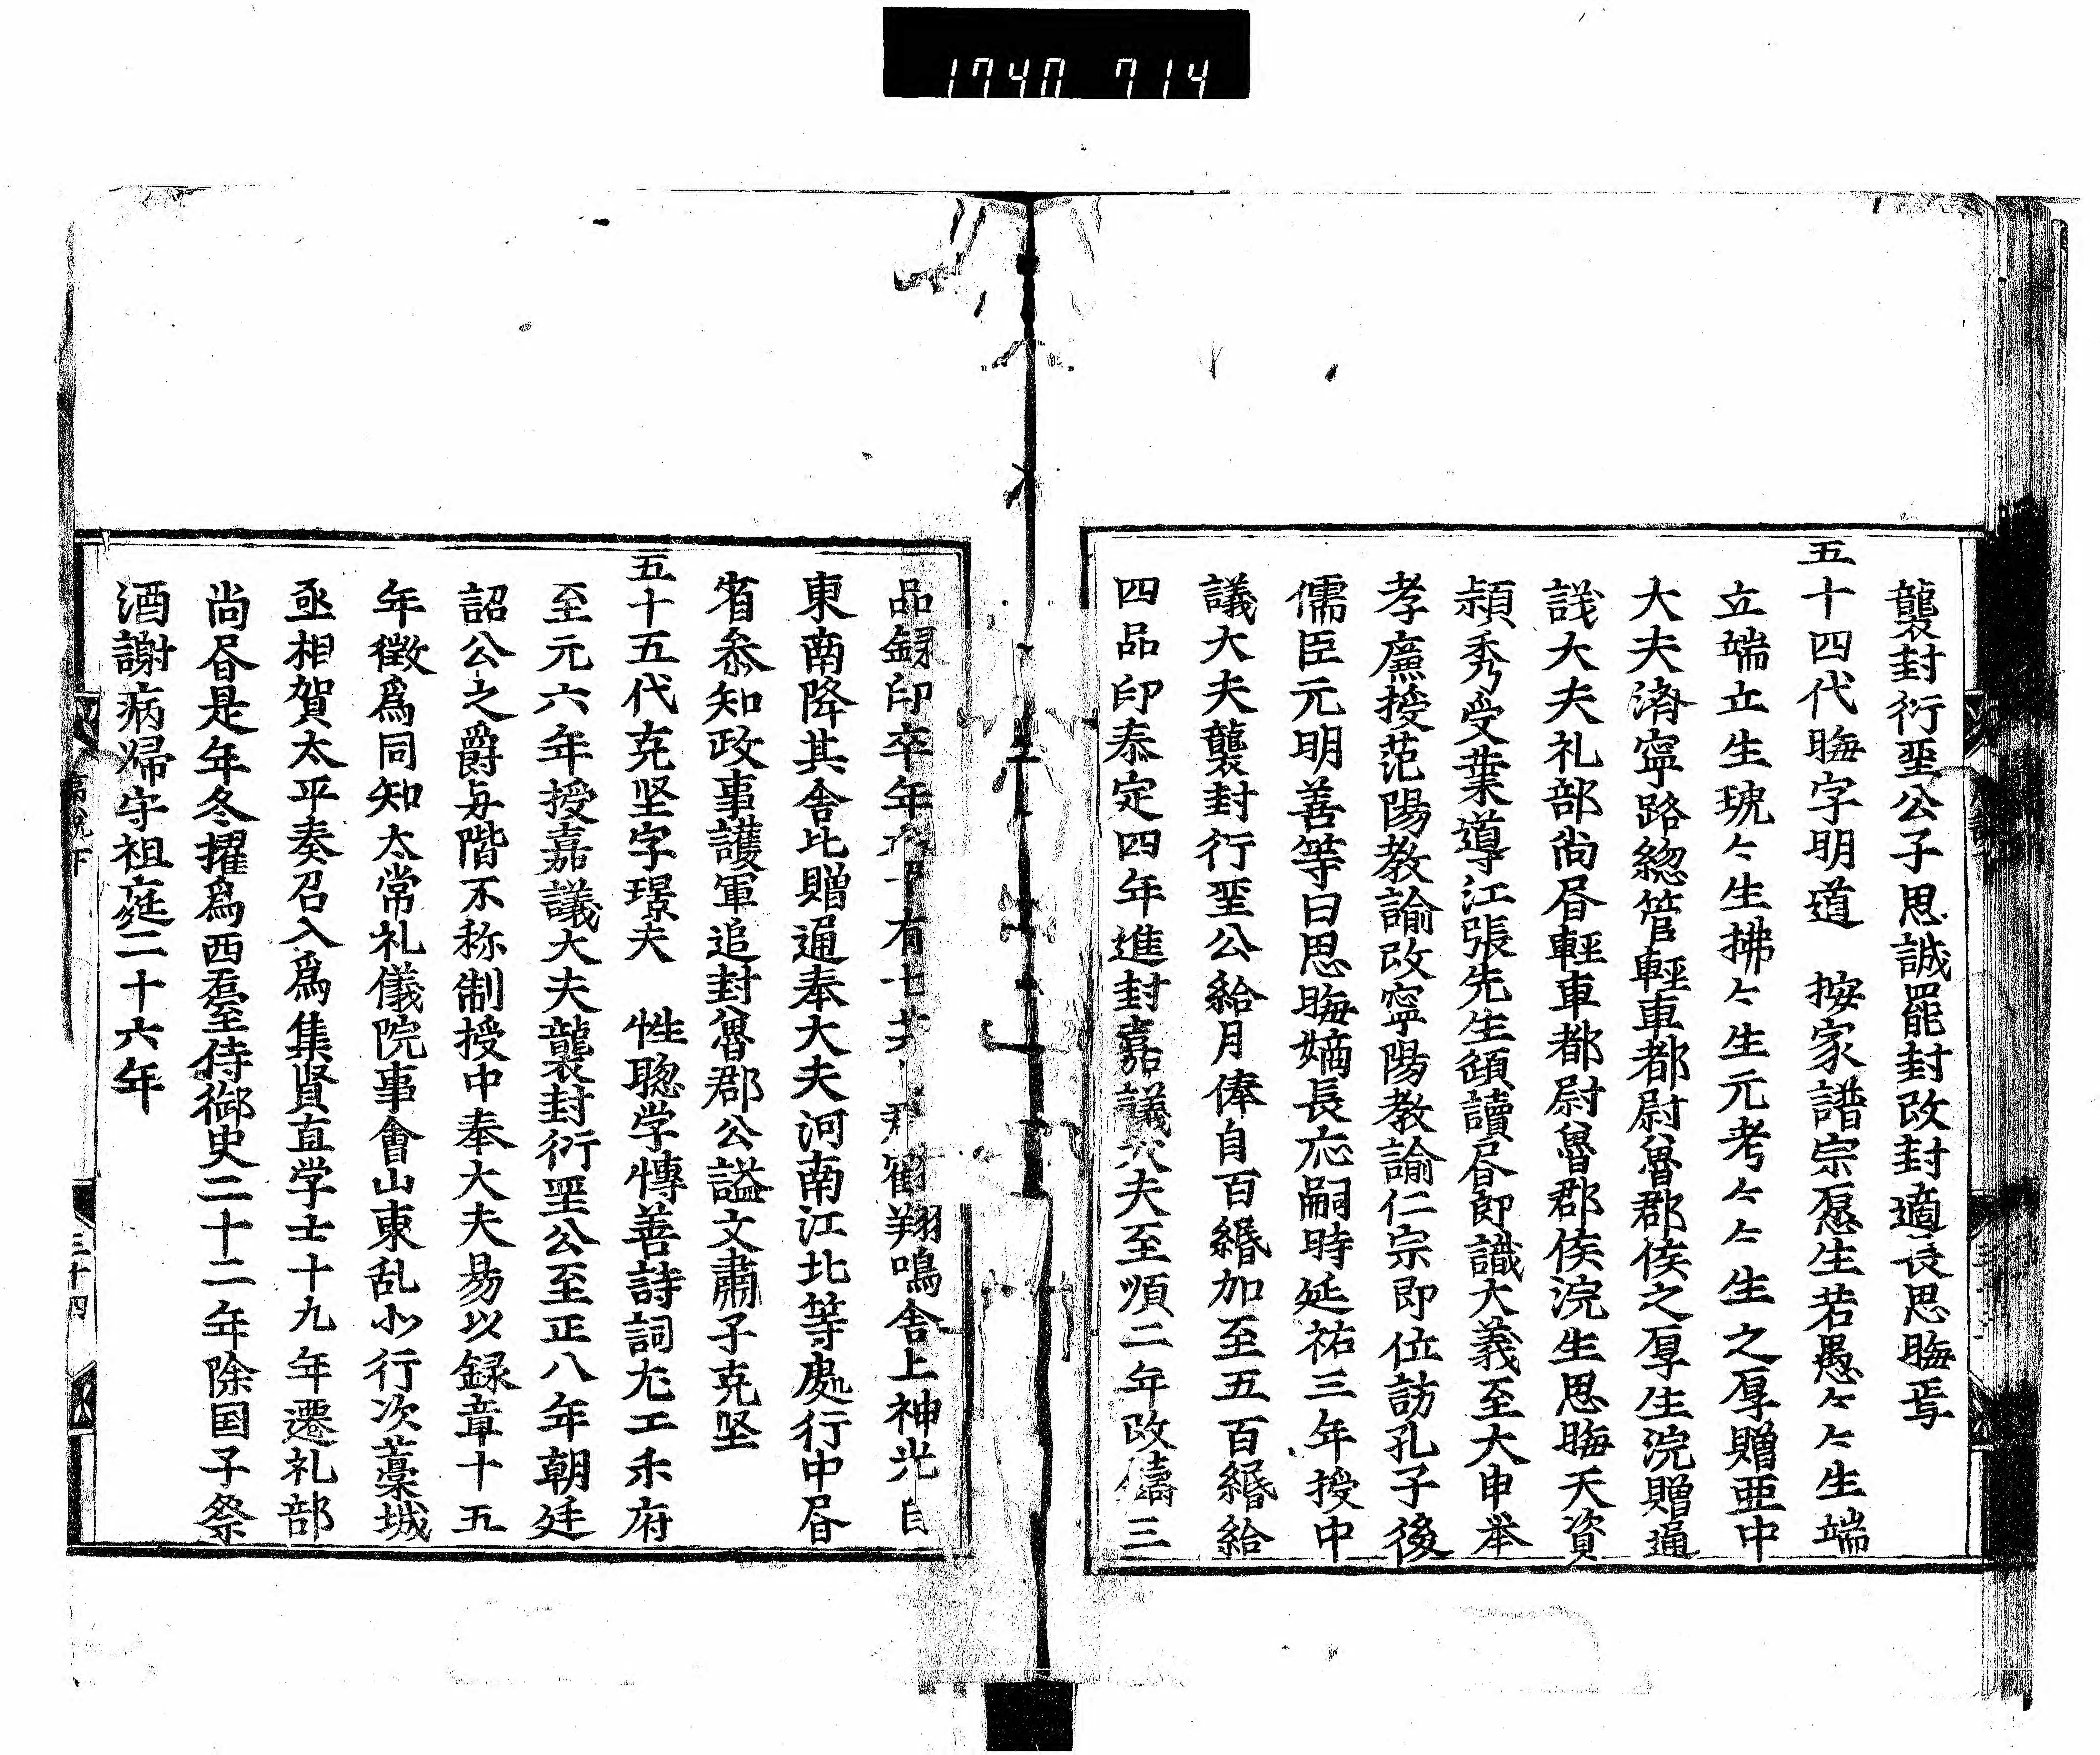 1740 714
襲封衍聖公子思誠罷封改封適長思晦焉
五十四代晦字明道　按家譜宗愿生若愚々々生端
立端立生琥々生拂々生元考々々生之厚贈亜中
大夫済寧路総管軽車都尉魯郡侯之厚生浣贈通
議大夫礼部尚㫺軽車都尉魯郡侯浣生思晦天資
頴秀受業導江張先生𩔖讀㫺即識大義至大申举
孝廉授范陽教諭改寧陽教諭仁宗即位訪孔子後
儒臣元明善等曰思晦嫡長应嗣時延祐三年授中
議大夫襲封衍聖公給月俸自百緡加至五百緡給
四品印泰定四年進封嘉議大夫至順二年改鑄三
品銀印卒年　十有七　鶴翔鳴舎上神光自
東南降其舎比贈通奉大夫河南江北等處行中㫺
省叅知政事護軍追封魯郡公謚文肅子克坚
五十五代克坚字璟夫　性聡学愽善詩詞尤工乐府
至元六年授嘉議大夫襲封衍聖公至正八年朝廷
詔公之爵与階不称制授中奉大夫易以銀章十五
年徴爲同知太常礼儀院事會山東乱北行次藁城
丞相賀太平奏召入爲集賢直学士十九年遷礼部
尚㫺是年冬擢爲西䑓侍御史二十二年除国子祭
酒謝病帰守祖庭二十六年
三十四